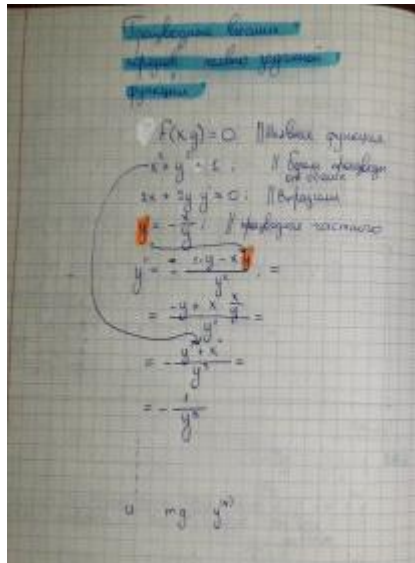 Производные высших
порядков неявно заданной
функции
F(x y) = 0 // Неявная функция
x² + y² = 1 ; // берём производн
2x + 2y y' = 0 ; // Выразили
y' = - x/y ; // производная частного
y'' = - (1·y - x y')/y² , =
= (-y + x x/y)/y² =
= - (y² + x²)/y³ =
= - 1/y³